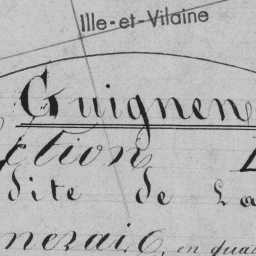 Ille-et-Vilaine
Guignen
ction
dite de La
nerais, en qua